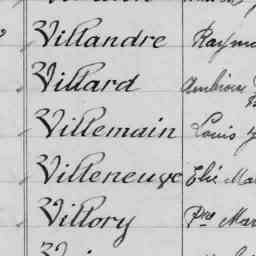 Villandre Raymo
Villard Ambroise
Villemain Louis
Villeneuve Elie Ma
Villory Pre Mar